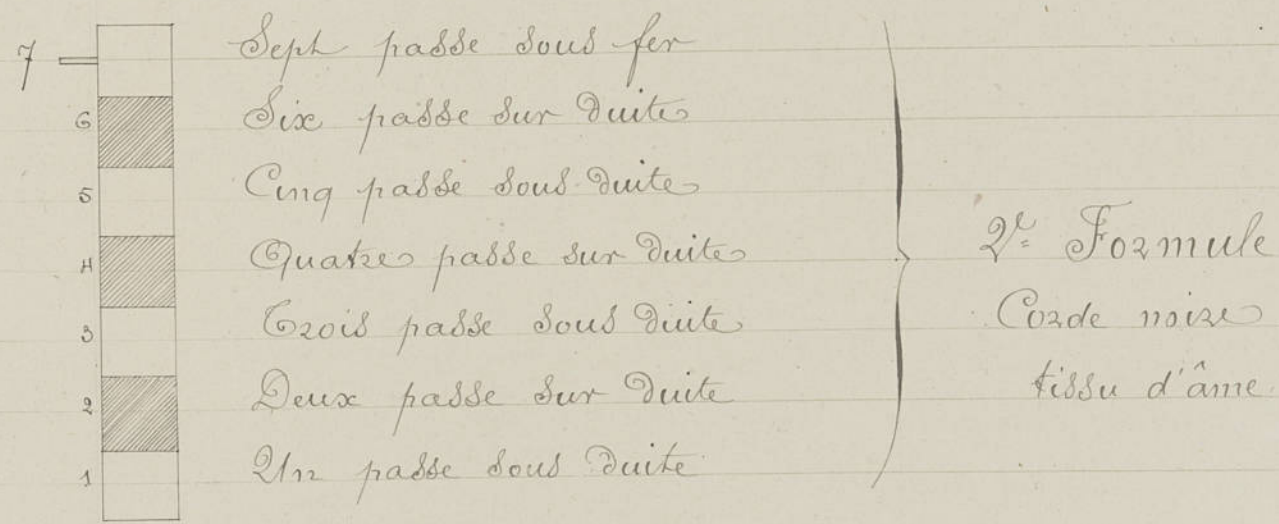 7 Sept passe sous fer
6 Six passe sur duite
5 Cinq passe sous duite
4 Quatre passe sur duite
3 Trois passe sous duite
2 Deux passe sur duite
1 Un passe sous duite
2e Formule
Corde noire
tissu d'âme